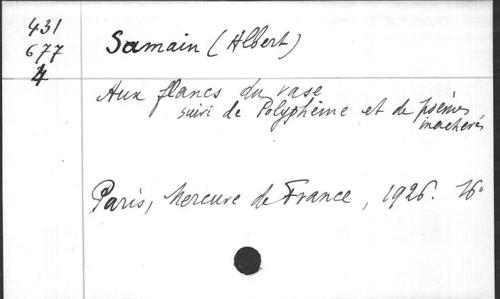 431
677
4
Samain (Albert)
Aux flancs du vase
suivi de Polyphème et de poèmes
inachevés
Paris, Mercure de France, 1926. 16°